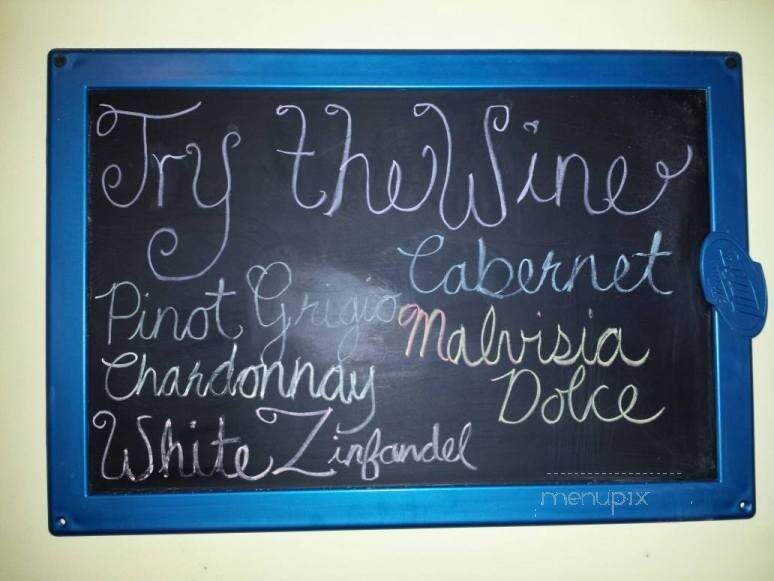 Try the Wine
Cabernet
Pinot Grigio
Malvisia
Chardonnay
Dolce
White Zinfandel
menupix